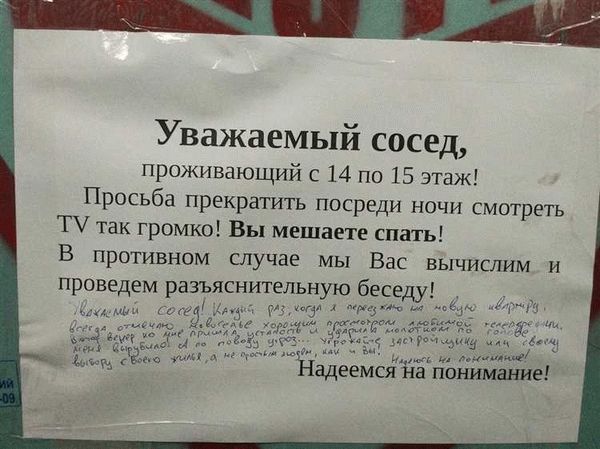 Уважаемый сосед,
проживающий с 14 по 15 этаж!
Просьба прекратить посреди ночи смотреть
TV так громко! Вы мешаете спать!
В противном случае мы Вас вычислим и
проведем разъяснительную беседу!
Уважаемый сосед! Каждый раз, когда я переезжаю на новую квартиру,
всегда отмечаю новоселье хорошим просмотром любимой телепередачи.
вечер ко мне пришла усталость и ударила молотком по голове.
меня вырубило! А по поводу угроз... угрожайте застройщику или своему
выбору своего жилья, а не простым людям, как и Вы! Надеюсь на понимание!
Надеемся на понимание!
ий
-09